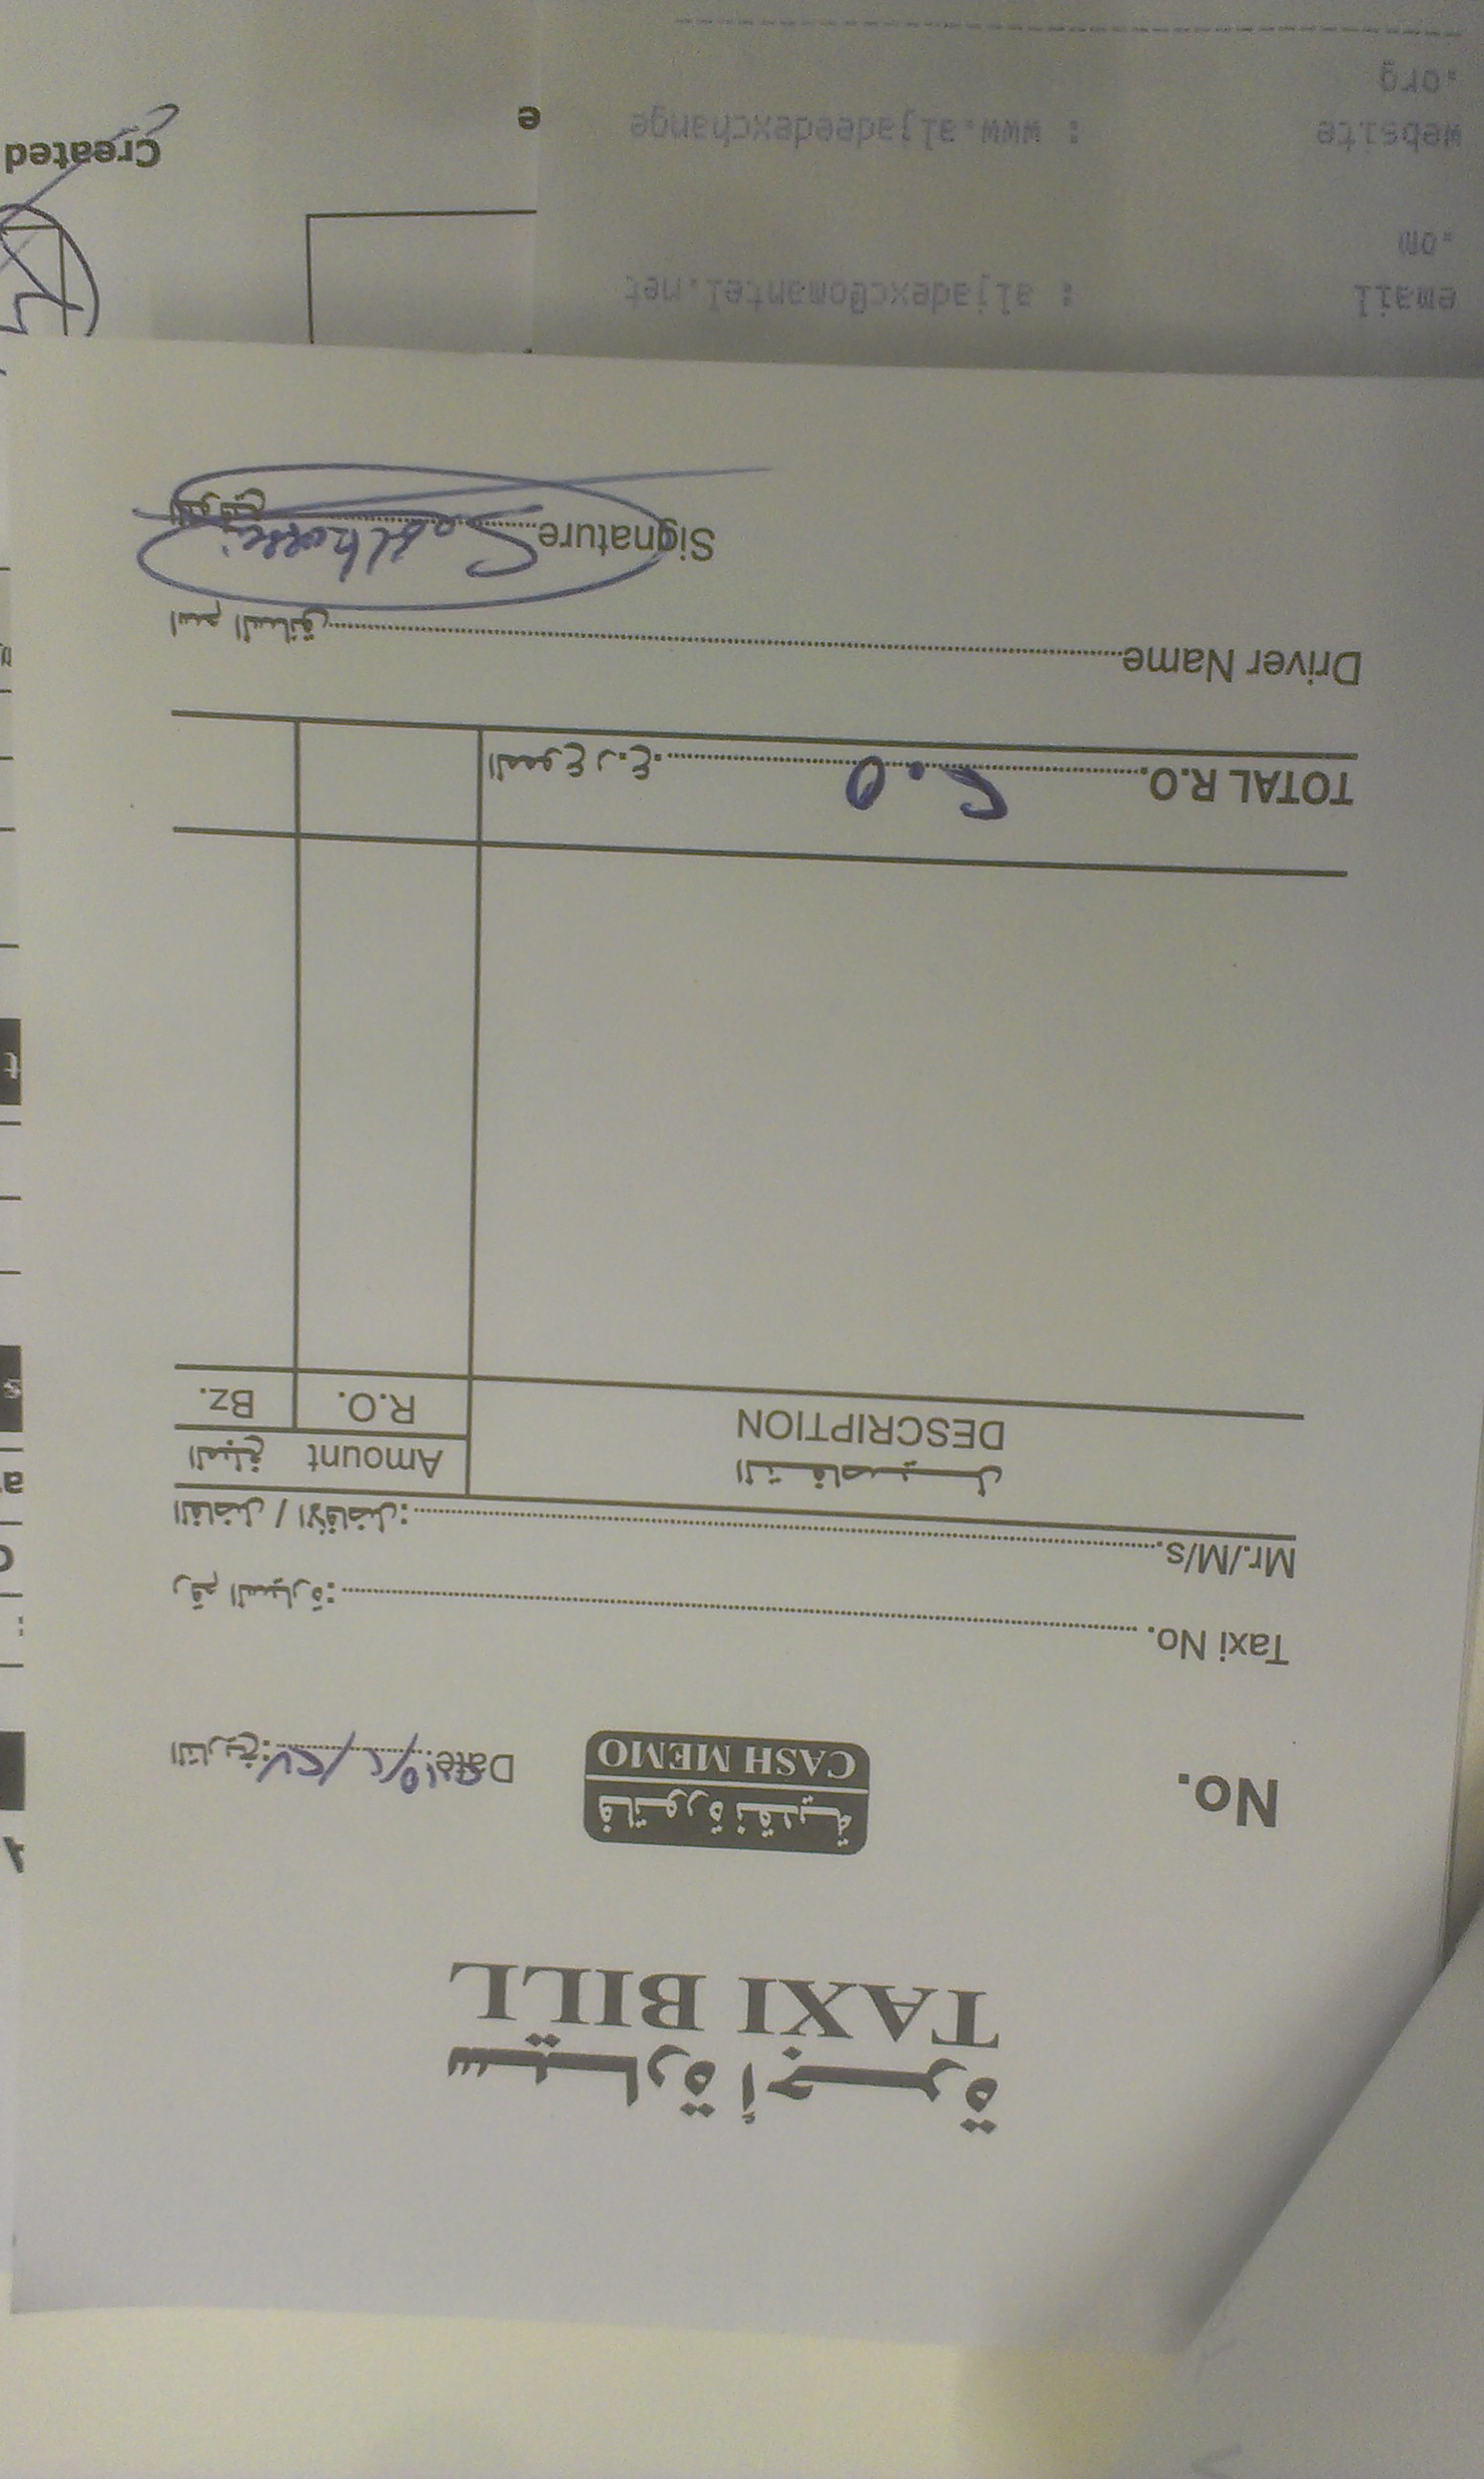 سيارة أجرة
TAXI BILL
No.
فاتورة نقدية
CASH MEMO
Date: التاريخ:
Taxi No. رقم السيارة:
Mr./M/s. الفاضل / الأفاضل:
التفاصيل
DESCRIPTION
Amount المبلغ
R.O.
Bz.
TOTAL R.O. المجموع ر.ع.
Driver Name اسم السائق
Signature التوقيع
email : aljadexc@omantel.net
.om
website : www.aljadeedexchange
.org
e
Created